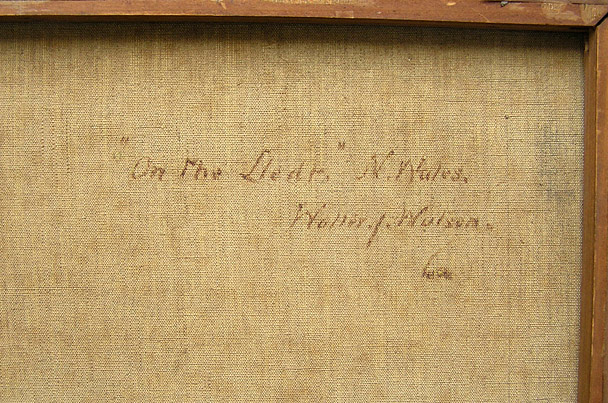 "On the Lledr." N. Wales.
Walter. J. Watson.